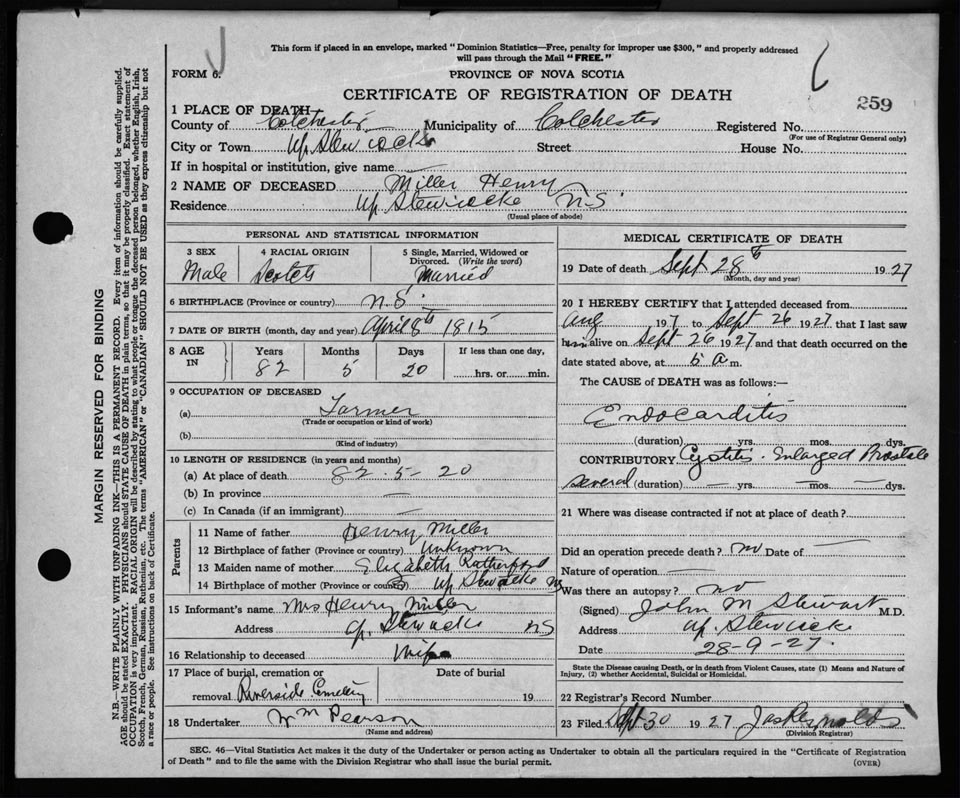 This form if placed in an envelope, marked "Dominion Statistics—Free, penalty for improper use $300," and properly addressed
will pass through the Mail "FREE."
FORM 6.
PROVINCE OF NOVA SCOTIA
CERTIFICATE OF REGISTRATION OF DEATH
259
1 PLACE OF DEATH
County of Colchester Municipality of Colchester Registered No.
(For use of Registrar General only)
City or Town Up. Stewiacke Street House No.
If in hospital or institution, give name —
2 NAME OF DECEASED Miller Henry
Residence Up. Stewiacke N.S.
(Usual place of abode)
PERSONAL AND STATISTICAL INFORMATION
3 SEX Male
4 RACIAL ORIGIN Scotch
5 Single, Married, Widowed or Divorced. (Write the word) Married
6 BIRTHPLACE (Province or country) N.S.
7 DATE OF BIRTH (month, day and year) April 8th 1815
8 AGE IN Years 82 Months 5 Days 20 If less than one day, hrs. or min.
9 OCCUPATION OF DECEASED
(a) Farmer
(Trade or occupation or kind of work)
(b)
(Kind of industry)
10 LENGTH OF RESIDENCE (in years and months)
(a) At place of death 82 - 5 - 20
(b) In province —
(c) In Canada (if an immigrant) —
Parents
11 Name of father Henry Miller
12 Birthplace of father (Province or country) Unknown
13 Maiden name of mother Elizabeth Rutherford
14 Birthplace of mother (Province or country) Up Stewiacke NS
15 Informant's name Mrs Henry Miller
Address Up. Stewiacke NS
16 Relationship to deceased Wife
17 Place of burial, cremation or removal Riverside Cemetery
Date of burial 19
18 Undertaker Wm Pearson
(Name and address)
MEDICAL CERTIFICATE OF DEATH
19 Date of death Sept 28th 1927
(Month, day and year)
20 I HEREBY CERTIFY that I attended deceased from
Aug 197 to Sept 26 1927 that I last saw
him alive on Sept 26 1927 and that death occurred on the
date stated above, at 5 a m.
The CAUSE of DEATH was as follows:—
Endocarditis
(duration) yrs. mos. dys.
CONTRIBUTORY Cystitis - Enlarged Prostate
several (duration) — yrs. — mos. — dys.
21 Where was disease contracted if not at place of death?
Did an operation precede death? no Date of —
Nature of operation —
Was there an autopsy? no
(Signed) John M Stewart M.D.
Address Up. Stewiacke
Date 28-9-27.
State the Disease causing Death, or in death from Violent Causes, state (1) Means and Nature of
Injury, (2) whether Accidental, Suicidal or Homicidal.
22 Registrar's Record Number
23 Filed Sept 30 1927 Jas Reynolds
(Division Registrar)
SEC. 46—Vital Statistics Act makes it the duty of the Undertaker or person acting as Undertaker to obtain all the particulars required in the "Certificate of Registration
of Death" and to file the same with the Division Registrar who shall issue the burial permit.
(OVER)
MARGIN RESERVED FOR BINDING
N.B.—WRITE PLAINLY WITH UNFADING INK—THIS IS A PERMANENT RECORD. Every item of information should be carefully supplied.
AGE should be stated EXACTLY. PHYSICIANS should STATE CAUSE OF DEATH in plain terms, so that it may be properly classified. Exact statement of
OCCUPATION is very important. RACIAL ORIGIN will be described by stating to what people or tongue the deceased person belonged, whether English, Irish,
Scotch, French, German, Russian, Ruthenian, etc. The terms "AMERICAN" or "CANADIAN" SHOULD NOT BE USED as they express citizenship but not
a race or people. See instructions on back of Certificate.